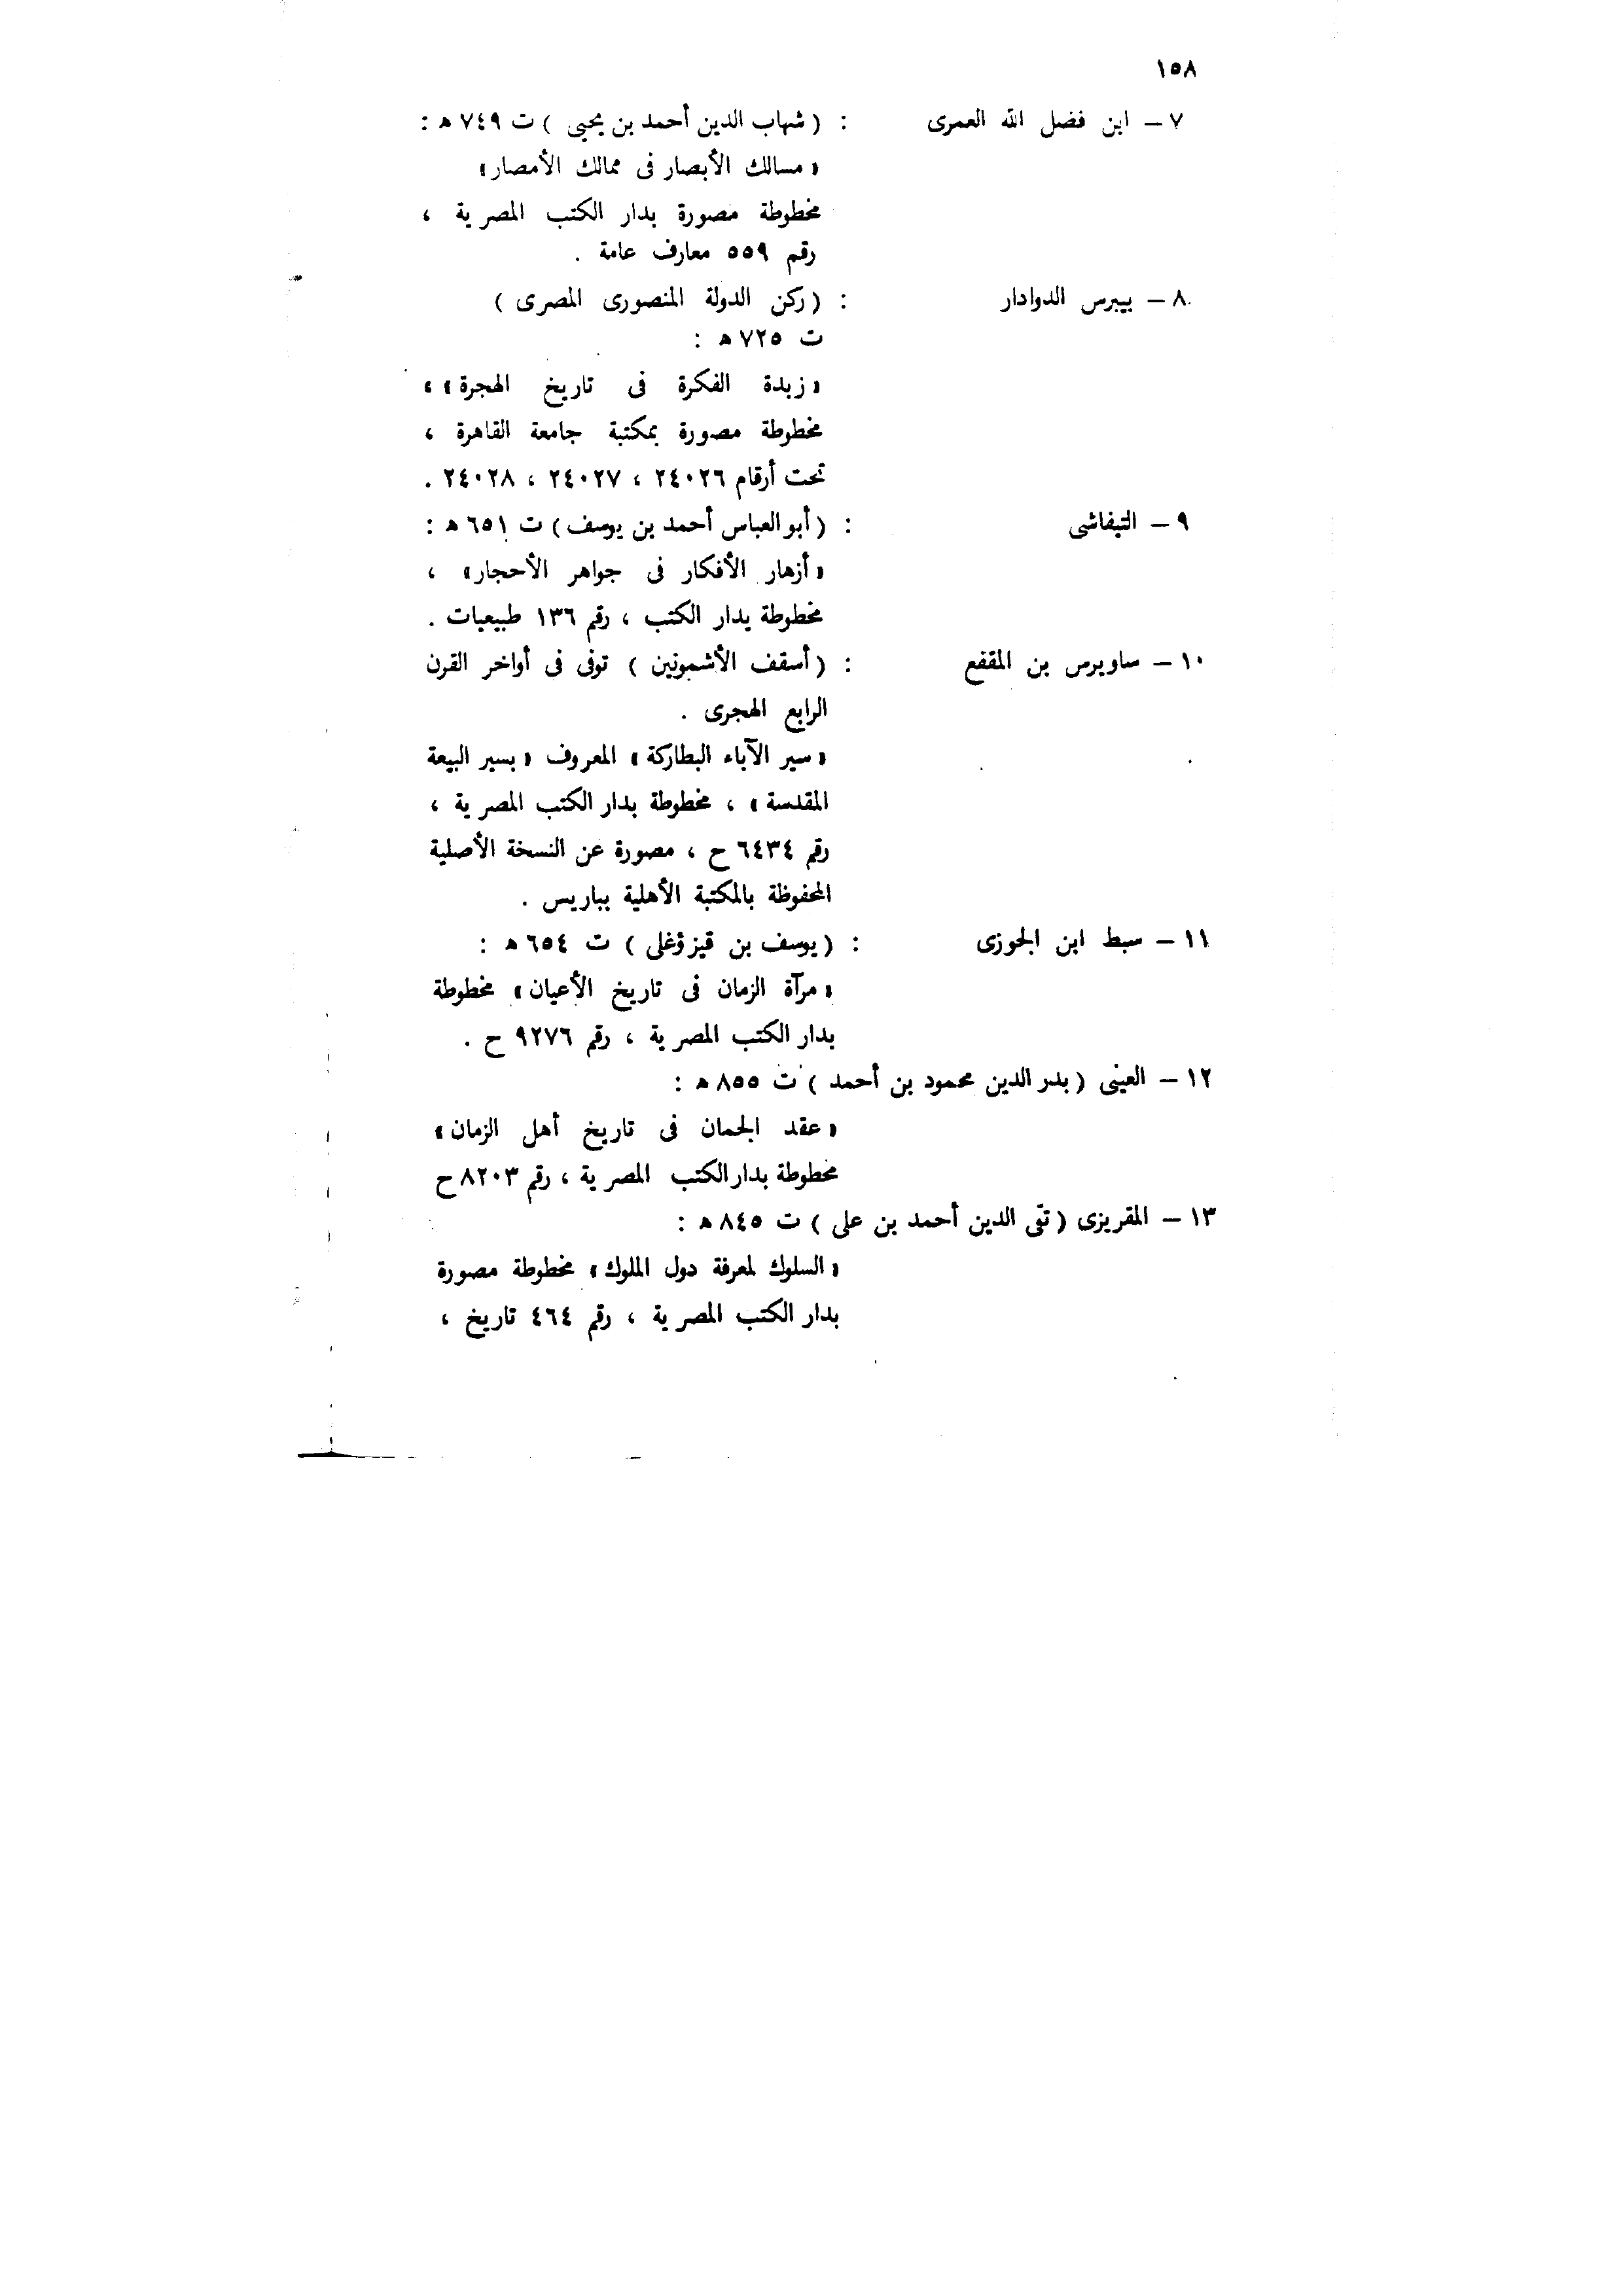 ١٥٨
٧ — ابن فضل الله العمرى : ( شهاب الدين أحمد بن يحيى ) ت ٧٤٩ ه :
« مسالك الأبصار فى ممالك الأمصار»
مخطوطة مصورة بدار الكتب المصرية ،
رقم ٥٥٩ معارف عامة .
٨ — بيبرس الدوادار : ( ركن الدولة المنصورى المصرى )
ت ٧٢٥ ه :
« زبدة الفكرة فى تاريخ الهجرة » ،
مخطوطة مصورة بمكتبة جامعة القاهرة ،
تحت أرقام ٢٤٠٢٦ ، ٢٤٠٢٧ ، ٢٤٠٢٨ .
٩ — التيفاشى : ( أبو العباس أحمد بن يوسف ) ت ٦٥١ ه :
« أزهار الأفكار فى جواهر الأحجار» ،
مخطوطة بدار الكتب ، رقم ١٣٦ طبيعيات .
١٠ — ساويرس بن المقفع : ( أسقف الأشمونين ) توفى فى أواخر القرن
الرابع الهجرى .
« سير الآباء البطاركة » المعروف « بسير البيعة
المقدسة » ، مخطوطة بدار الكتب المصرية ،
رقم ٦٤٣٤ ح ، مصورة عن النسخة الأصلية
المحفوظة بالمكتبة الأهلية بباريس .
١١ — سبط ابن الجوزى : ( يوسف بن قيزؤغلى ) ت ٦٥٤ ه :
« مرآة الزمان فى تاريخ الأعيان » مخطوطة
بدار الكتب المصرية ، رقم ٩٢٧٦ ح .
١٢ — العينى ( بدر الدين محمود بن أحمد ) ت ٨٥٥ ه :
« عقد الجمان فى تاريخ أهل الزمان »
مخطوطة بدار الكتب المصرية ، رقم ٨٢٠٣ ح
١٣ — المقريزى ( تقى الدين أحمد بن على ) ت ٨٤٥ ه :
« السلوك لمعرفة دول الملوك » مخطوطة مصورة
بدار الكتب المصرية ، رقم ٤٦٤ تاريخ ،